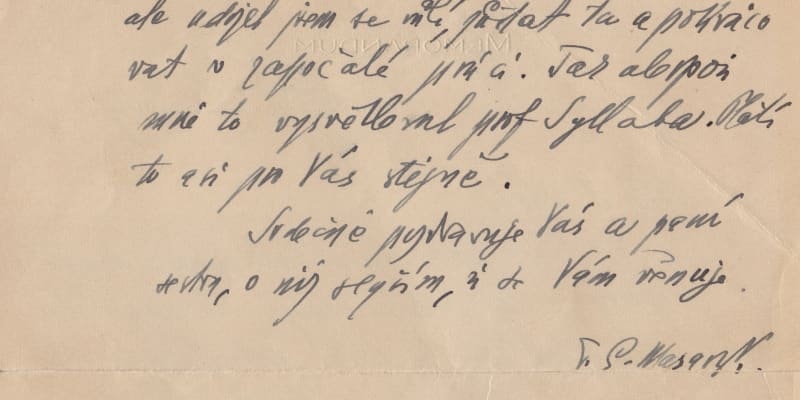 ale udijel jsem se měl pustat ta a pokračo
vat v započalé práci. Tak alespoň
mně to vysvětloval prof Syllaba. Platí
to asi pro Vás stejně.
Srdečně pozdravuje Vás a paní
sestru, o níž slyším, že se Vám věnuje.
T. G. Masaryk.
MEMORANDUM